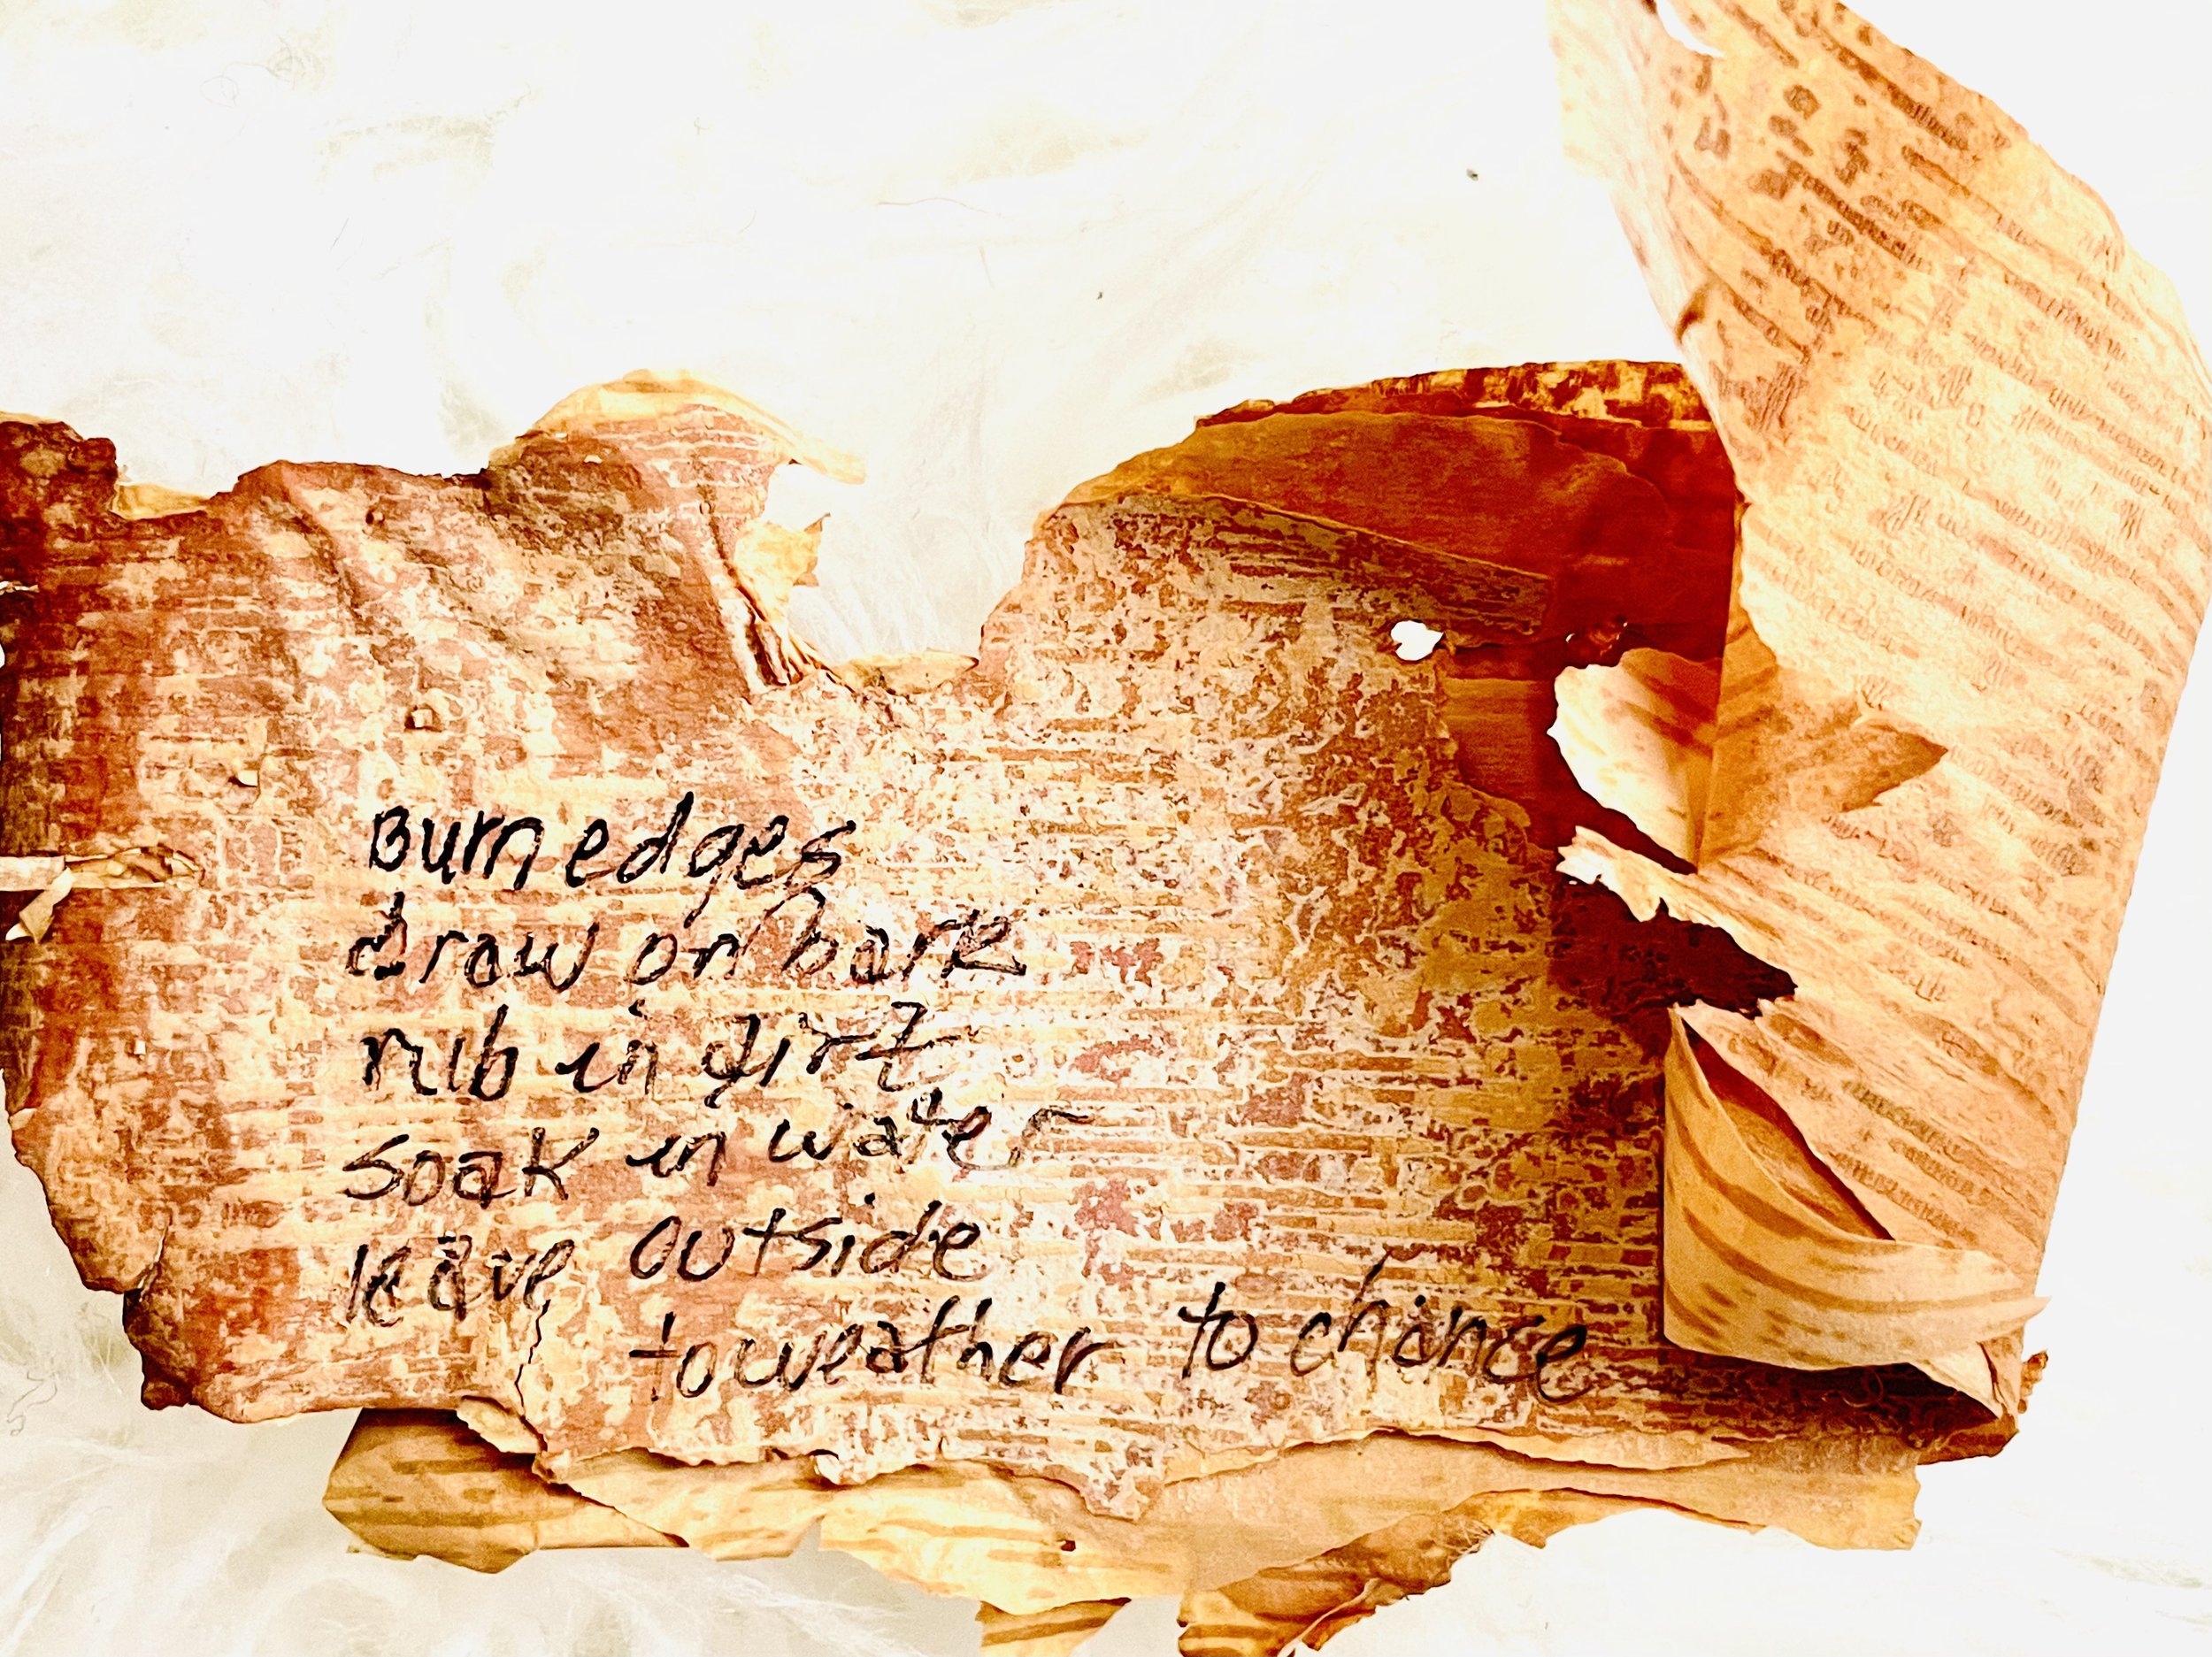 Burn edges
draw on bark
rub in dirt
soak in water
leave outside
to weather to chance